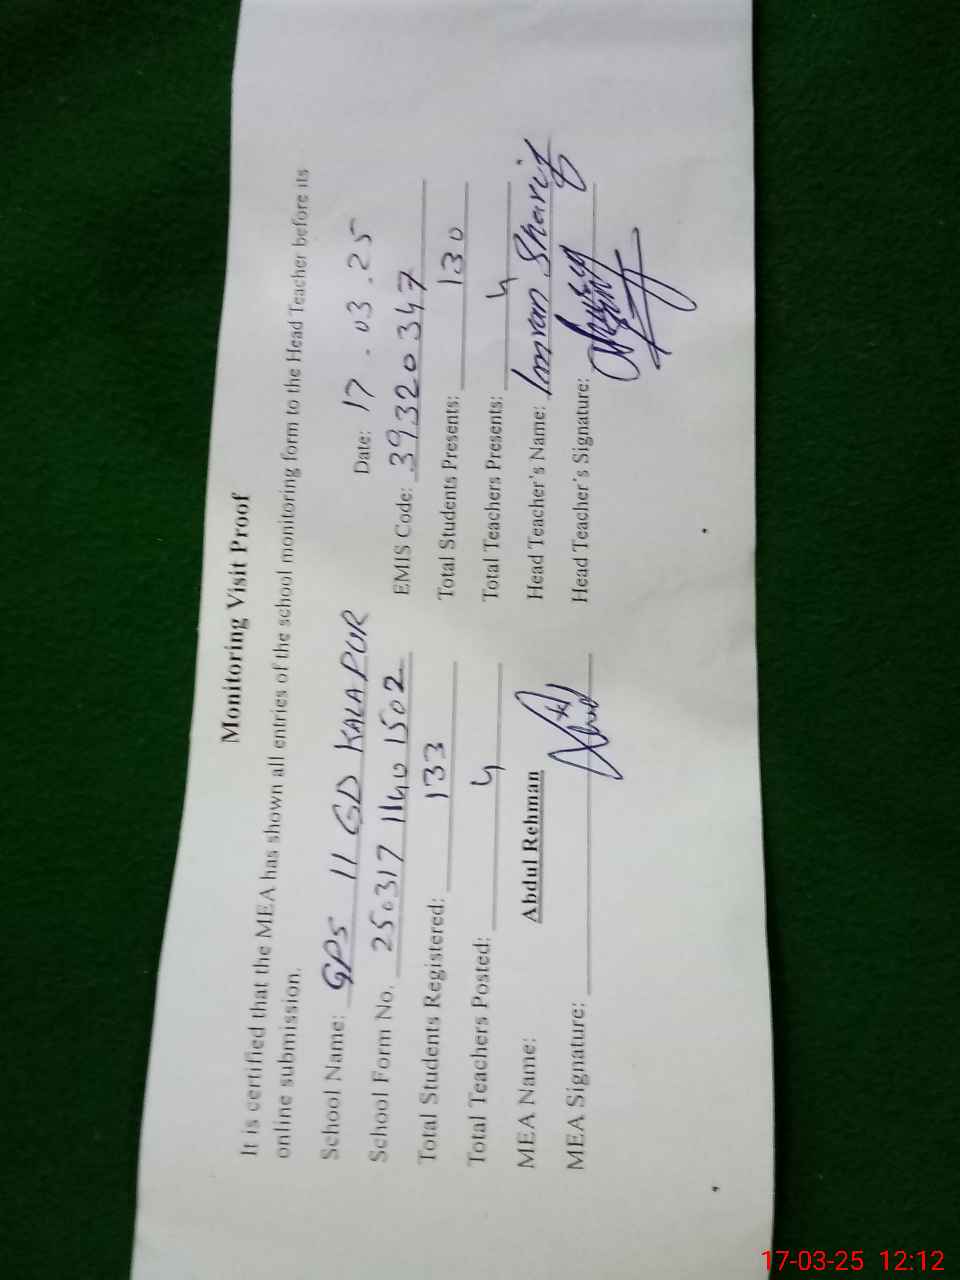 Monitoring Visit Proof
It is certified that the MEA has shown all entries of the school monitoring form to the Head Teacher before its
online submission.
School Name: GPS 11 GD KALAPUR Date: 17.03.25
School Form No. 250317 1140 1502 EMIS Code: 39320347
Total Students Registered: 133 Total Students Presents: 130
Total Teachers Posted: 4 Total Teachers Presents: 4
MEA Name: Abdul Rehman Head Teacher's Name: Imran Sharif
MEA Signature: Head Teacher's Signature:
17-03-25 12:12